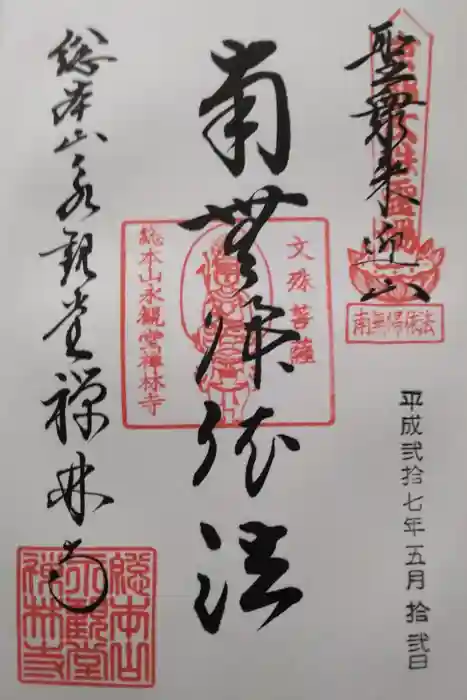 聖衆来迎山
南無帰依法
平成弐拾七年五月拾弐日
南無帰依法
文殊菩薩
総本山永観堂禅林寺
総本山永観堂禅林寺
総本山
永観堂
禅林寺